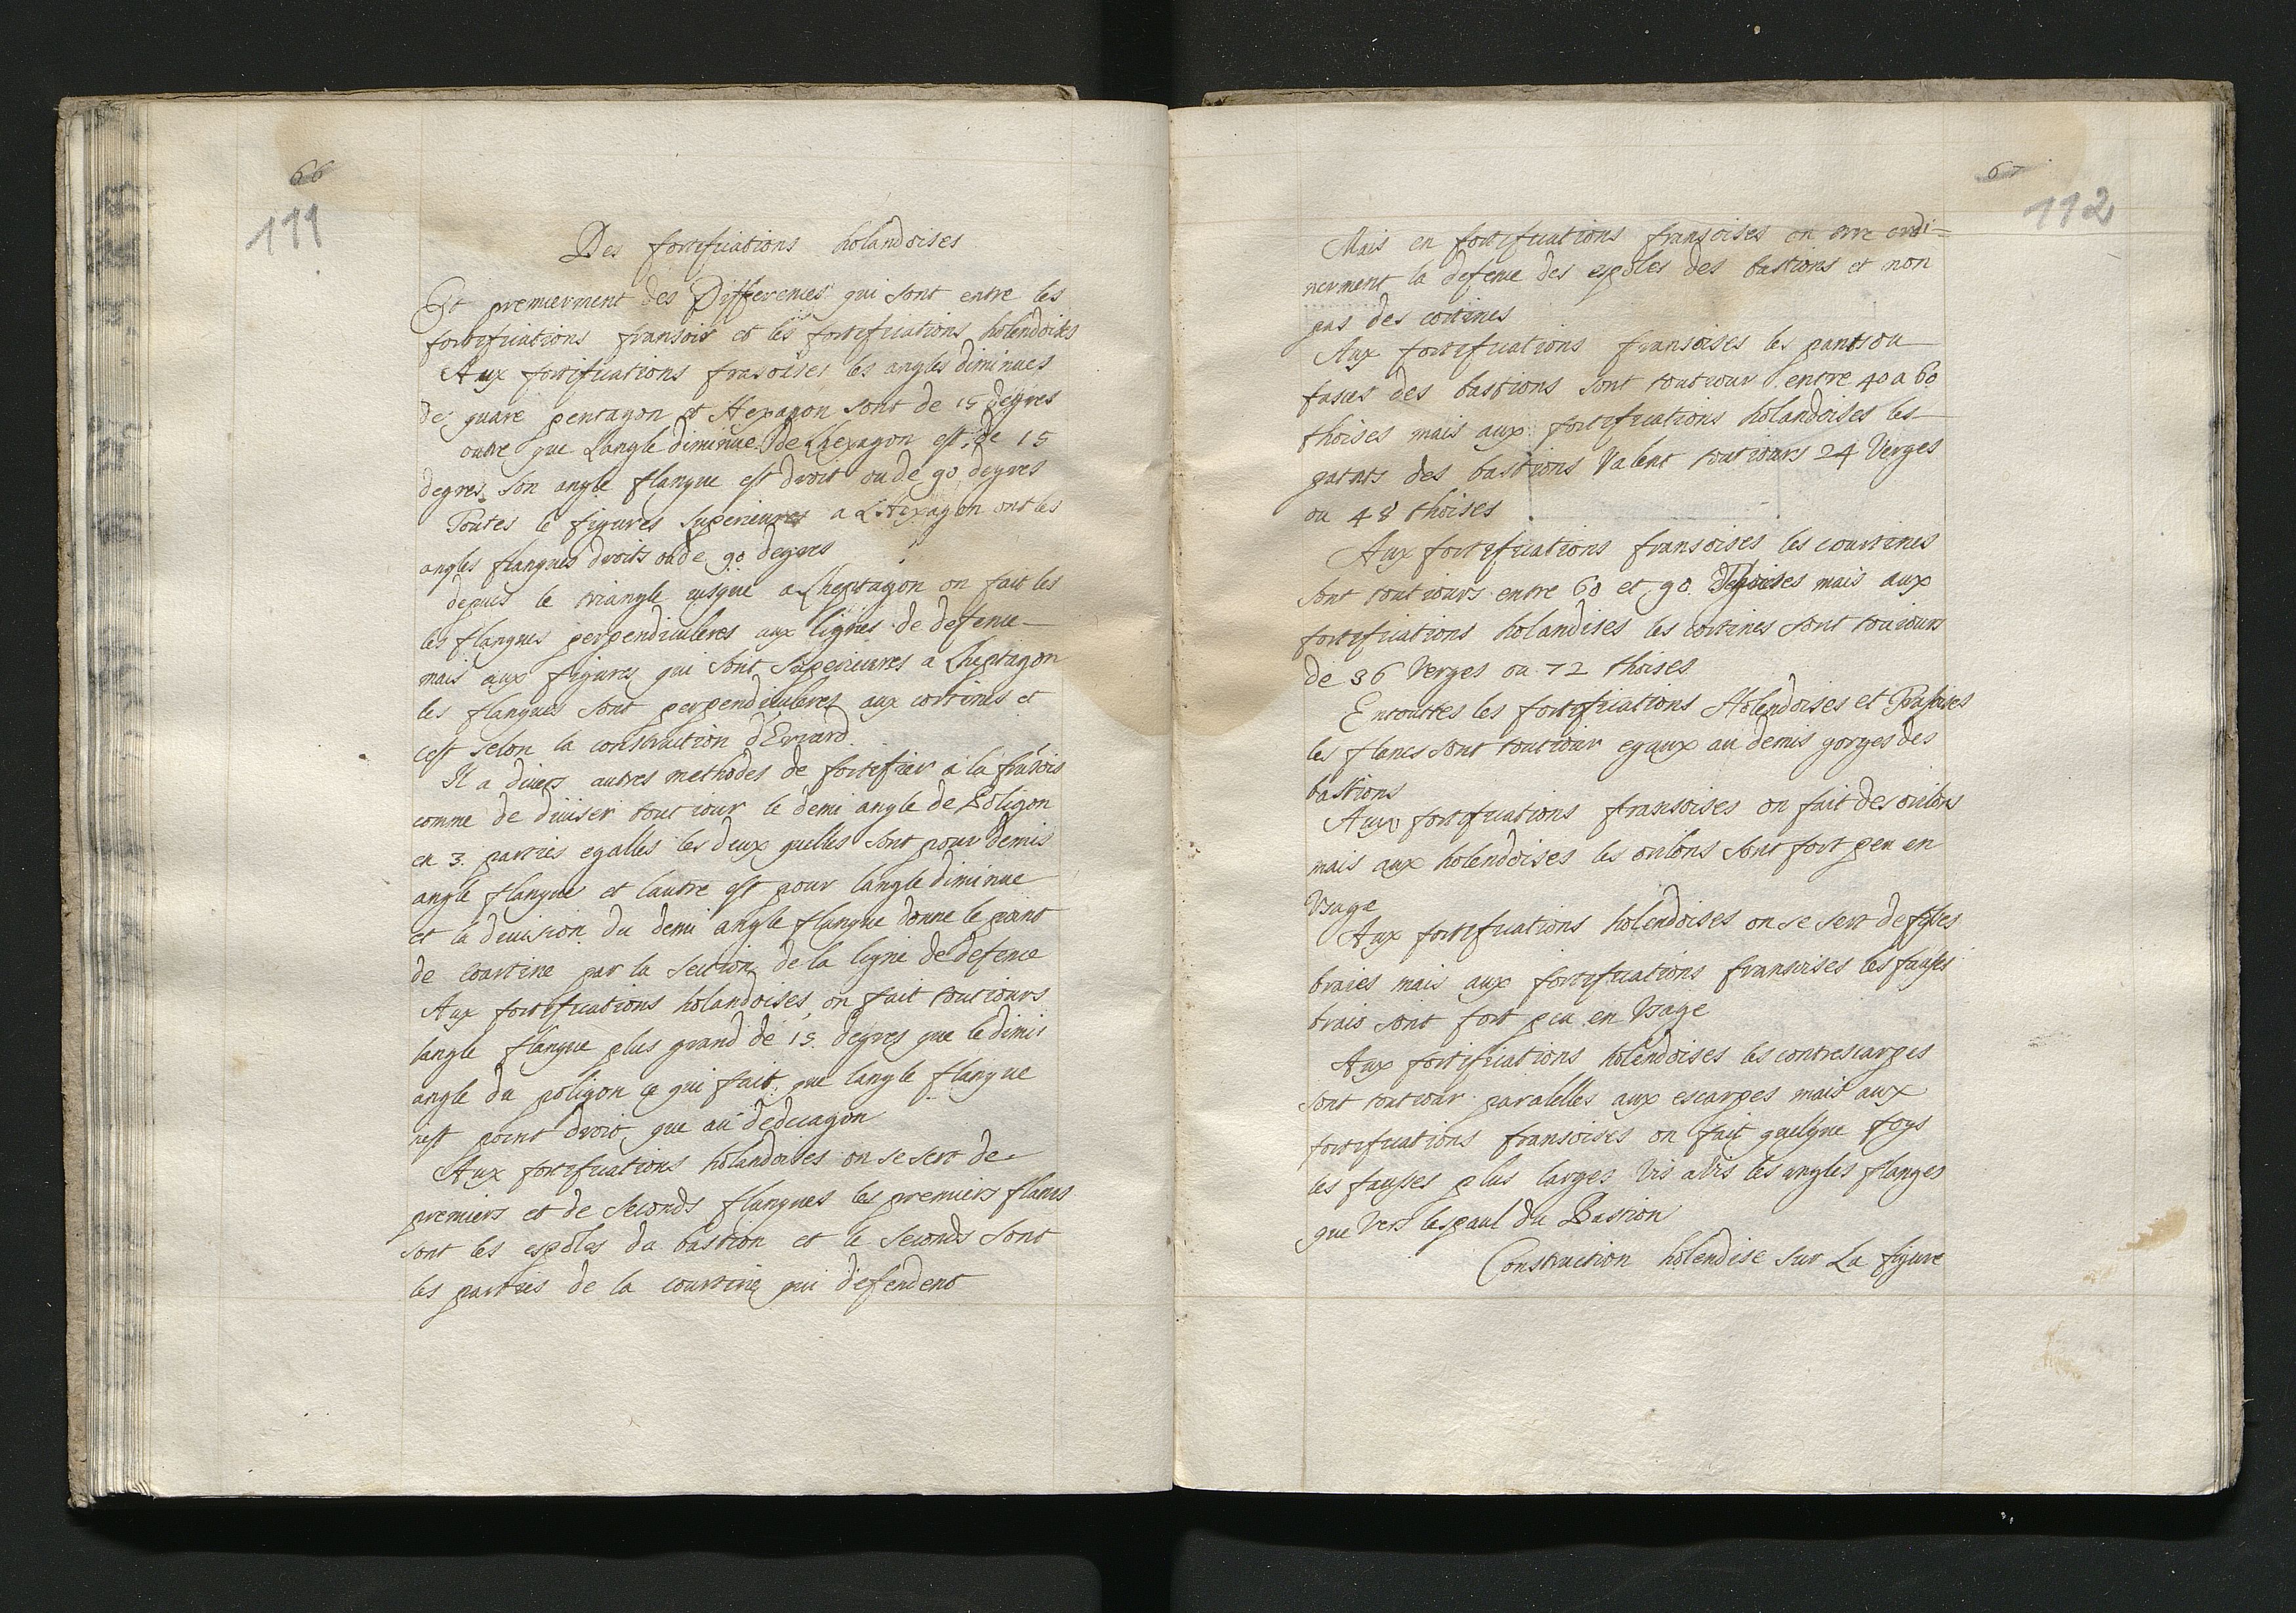 66
111
Des fortifications holandoises
Et premierment des Differences qui sont entre les
fortifications fransois et les fortifications holendoises
Aux fortifications frasoises les angles diminues
de quare pentagon et Hexagon sont de 15 degres
outre que Langle diminue de Lhexagon est de 15
degres son angle flanque est droit ou de 90 degres
Toutes le figures superieures a LHexagon ont les
angles flanques droits ou de 90 degres
depuis le triangle jusque a Lheptagon on fait les
les flanques perpendiculeres aux lignes de defence
mais aux figures qui sont superieures a Lheptagon
les flanques sont perpendiculeres aux cortines et
cest selon la construction dErrard
Il a divers autres methodes de fortefier a la frasois
comme de diviser tout iour le demi angle de Poligon
en 3. parties egalles les deux quelles sont pour demis
angle flanque et lautre est pour langle diminue
et la devision du demi angle flanque donne le point
de courtine par la section de la ligne de defence
Aux fortifications holandoises, on fait toutiours
langle flanque plus grand de 15. degres que le dimis
angle du poligon ce qui fait que langle flanque
nest point droit que au dedecagon
Aux fortifications holandoises on se sert de
premiers et de seconds flanques les premiers flancs
sont les espoles du bastion et le seconds sont
les parties de la courtine qui defendent
67
112
Mais en fortifications fransoises on ordi=
nerment la defence des espoles des bastions et non
pas des cortines
Aux fortifications fransoises les pants ou
fases des bastions sont toutiour entre 40 a 60
thoises mais aux fortifications holandoises les
patnts des bastions Valent toutiours 24 Verges
ou 48 thoises
Aux fortifications fransoises les courtines
sont toutiours entre 60 et 90 Thoises mais aux
fortifications holandises les cortines sont touiours
de 36 Verges ou 72 thoises
Entouttes les fortifications Holendoises et
les flancs sont toutiour egaux au demis gorges des
bastions
Aux fortifications fransoises on fait des orilons
mais aux holendoises les orilons sont fort peu en
Vsage
Aux fortifications holendoises on se sert de
braies mais aux fortifications fransoises les fausses
brais sont fort peu en Vsage
Aux fortifications holendoises les contrescarpes
sont toutiour paralelles aux escarpes mais aux
fortifications fransoises on fait quelque foys
les fausses plus larges Vis a Vis les angles flanges
que Vers lespaul du Bastion
Construction holendise sur La figure